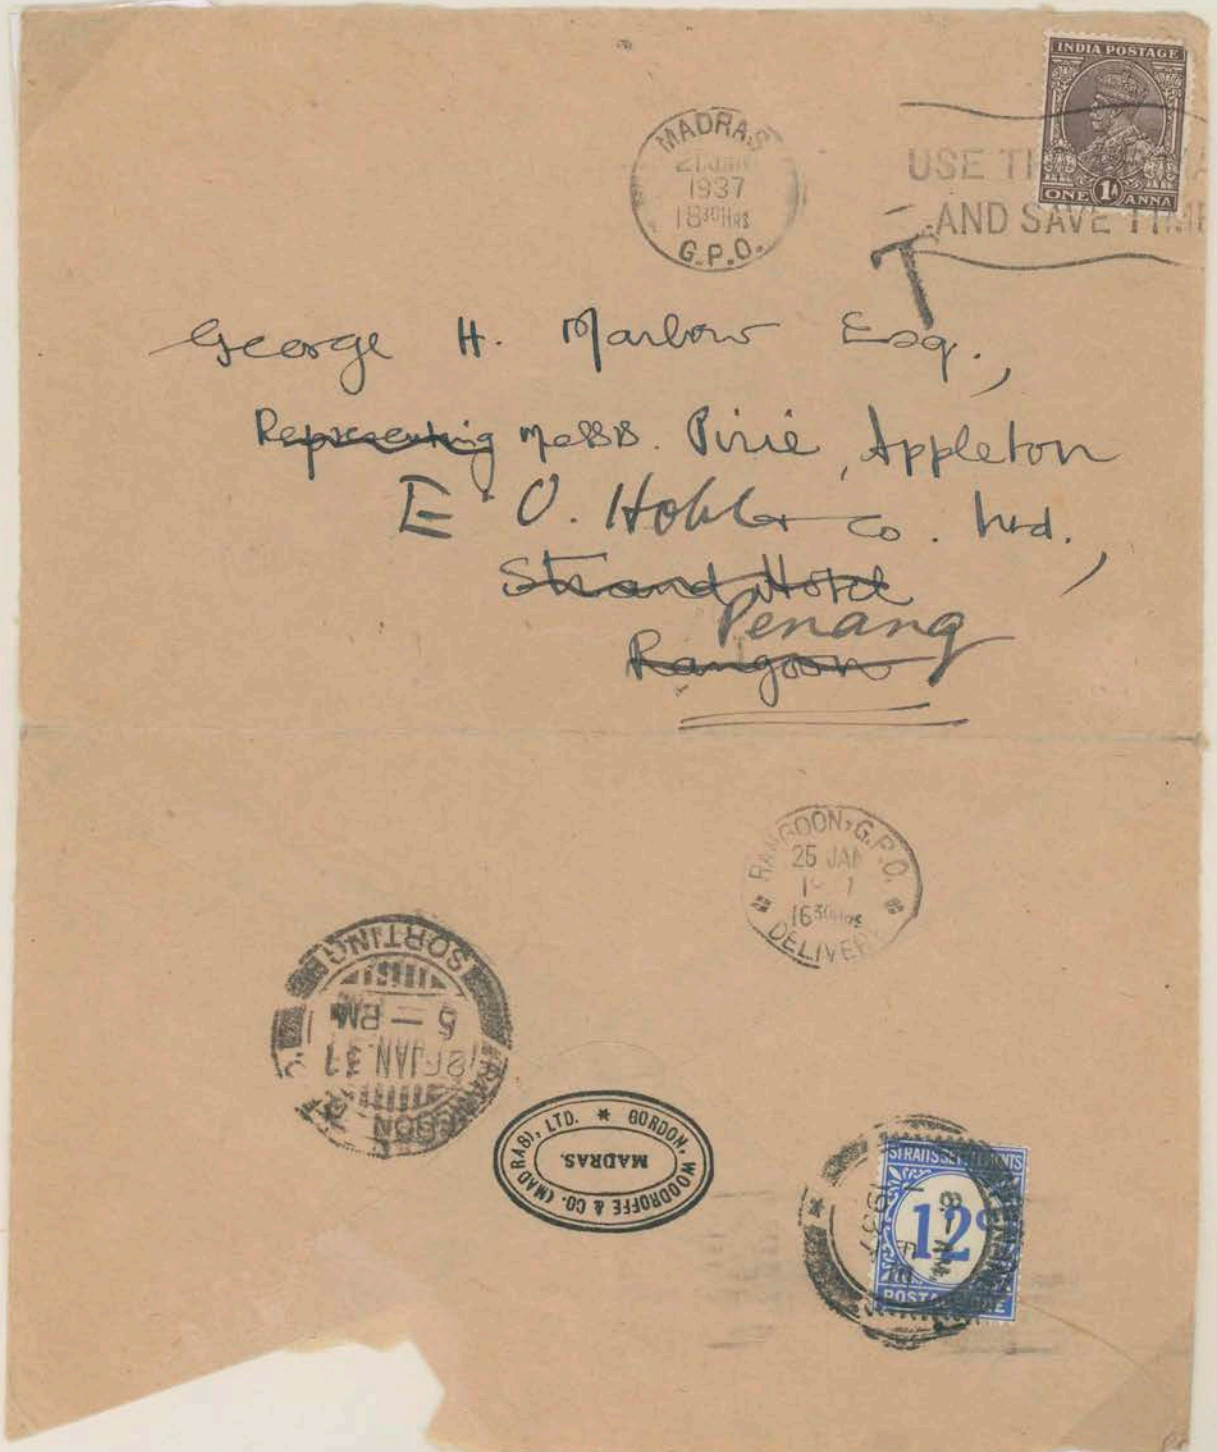 INDIA POSTAGE
ONE 1A ANNA
MADRAS
21 JAN
1937
18 30 HRS
G.P.O.
USE
AND SAVE TIME
T
George H. Marlow Esq.,
Representing Messrs. Pirie, Appleton
E. O. Co. Ltd.,
Strand Hotel
Penang
Rangoon
RANGOON G.P.O.
26 JAN
16 30 HRS
DELIVERY
SORTING
5 — PM
JAN. 37
RANGOON
GORDON, WOODROFFE & CO. (MADRAS), LTD. *
MADRAS.
STRAITS SETTLEMENTS
12c
POSTAGE DUE
PENANG
8 - AM
1937